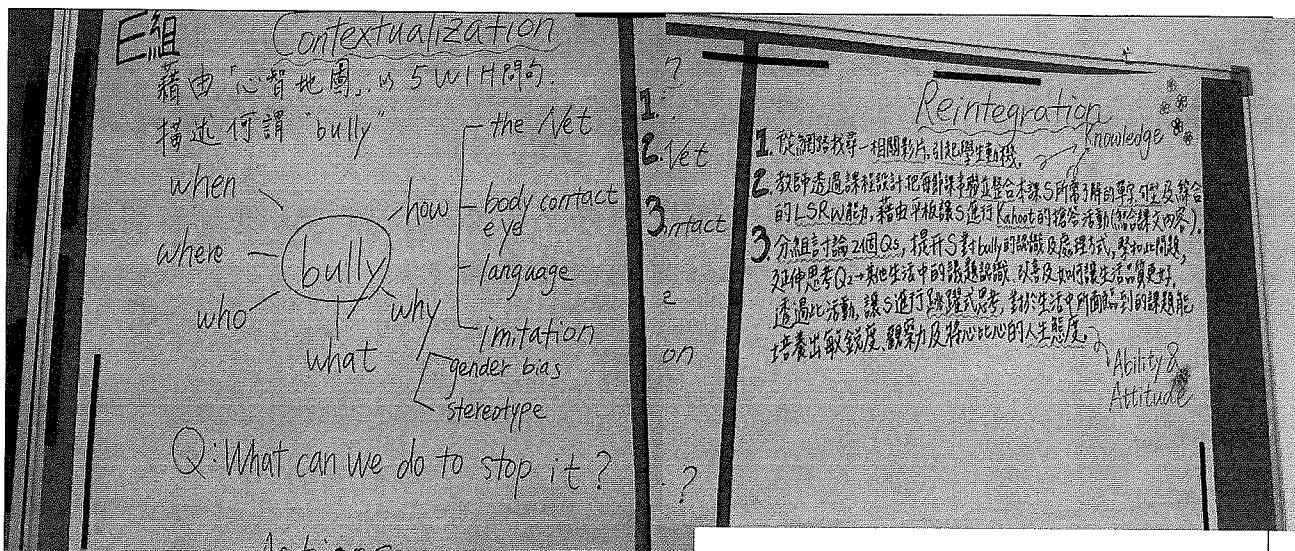 E組
Contextualization
藉由「心智地圖」以 5W1H問句.
描述何謂 "bully"
when
where
who
what
why
how
bully
the Net
body contact
eye
language
imitation
gender bias
stereotype
Q: What can we do to stop it?
?
1.
2. Net
3. ntact
e
on
?
Reintegration
1. 從網路找尋一相關影片,引起學生動機.
Knowledge
2. 教師透過課程設計把每節課串聯並整合本課S所需了解的單字.句型及綜合
的LSRW能力,藉由平板讓S進行Kahoot的搶答活動(結合課文內容).
3. 分組討論2個Qs,提升S對bully的認識及處理方式,
延伸思考Q2→其他生活中的議題認識.改善及如何讓生活品質更好.
透過此活動,讓S進行跳躍式思考,對於生活中所面臨到的課題能
培養出敏銳度.觀察力及將心比心的人生態度.
Ability &
Attitude